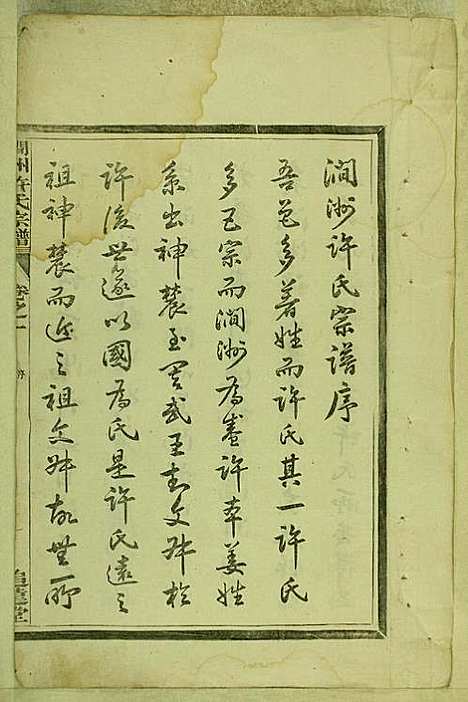 澗洲许氏宗谱序
吾邑多著姓而许氏其一许氏
多石宗而澗洲為盛许本姜姓
系出神農至周武王封文叔於
许後世遂以國為氏是许氏遠之
祖神農而近之祖文叔故無所
澗州許氏宗譜
卷之一
序
追遠堂